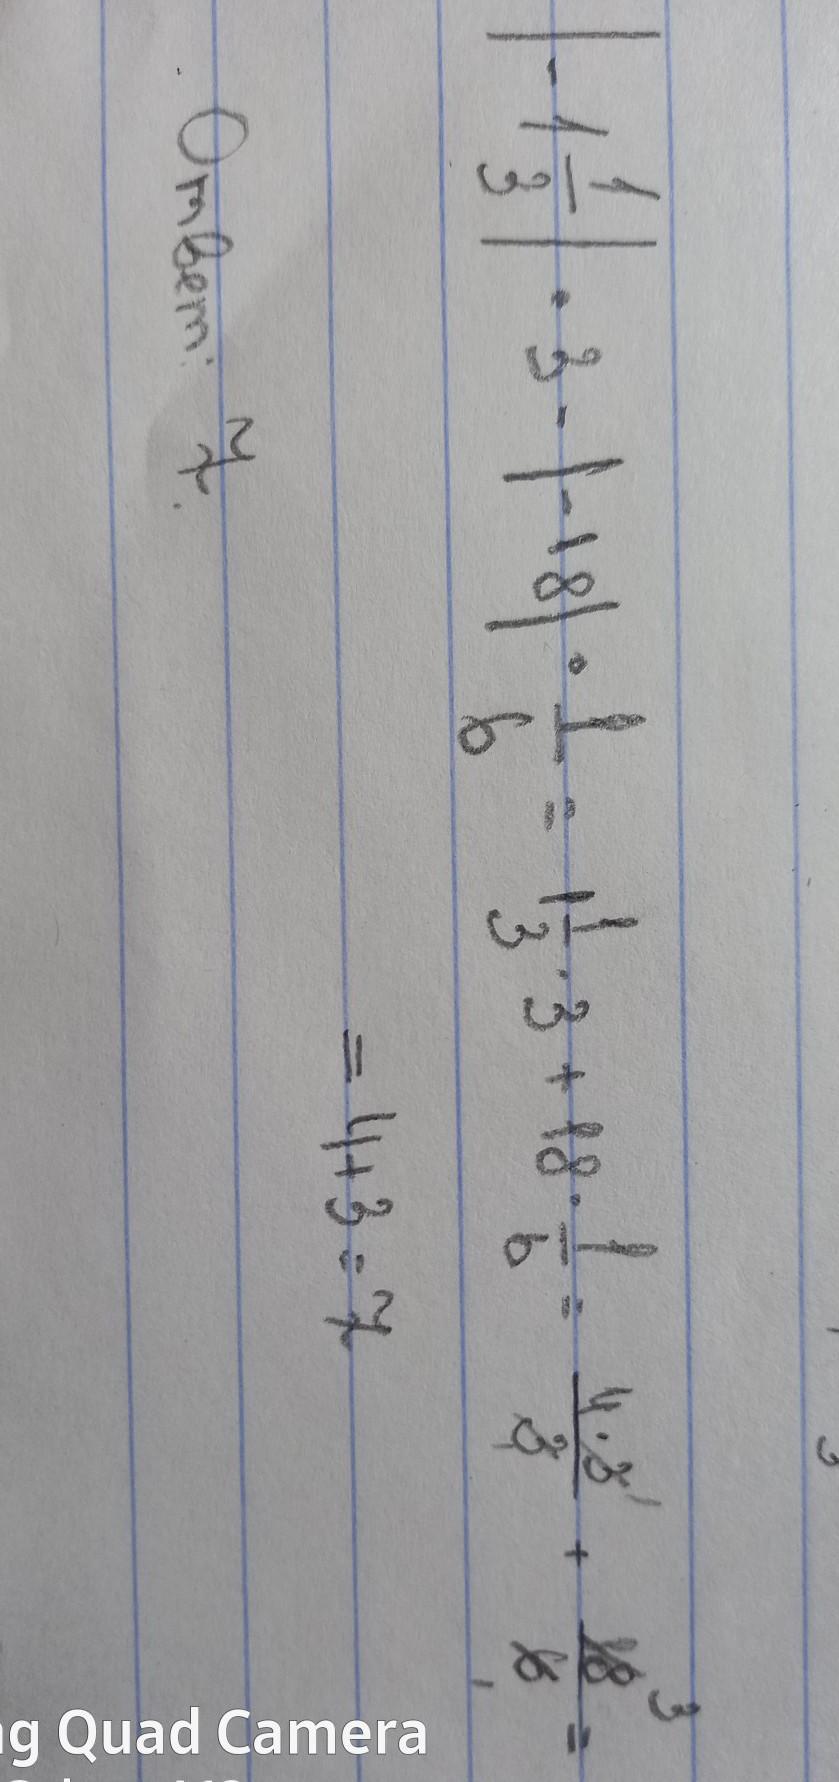 |-1 1/3| · 3 - |-18| · 1/6 = 1 1/3 · 3 + 18 · 1/6 = 4·3/3 + 18/6 =
= 4+3=7
Ответ: 7.
ng Quad Camera